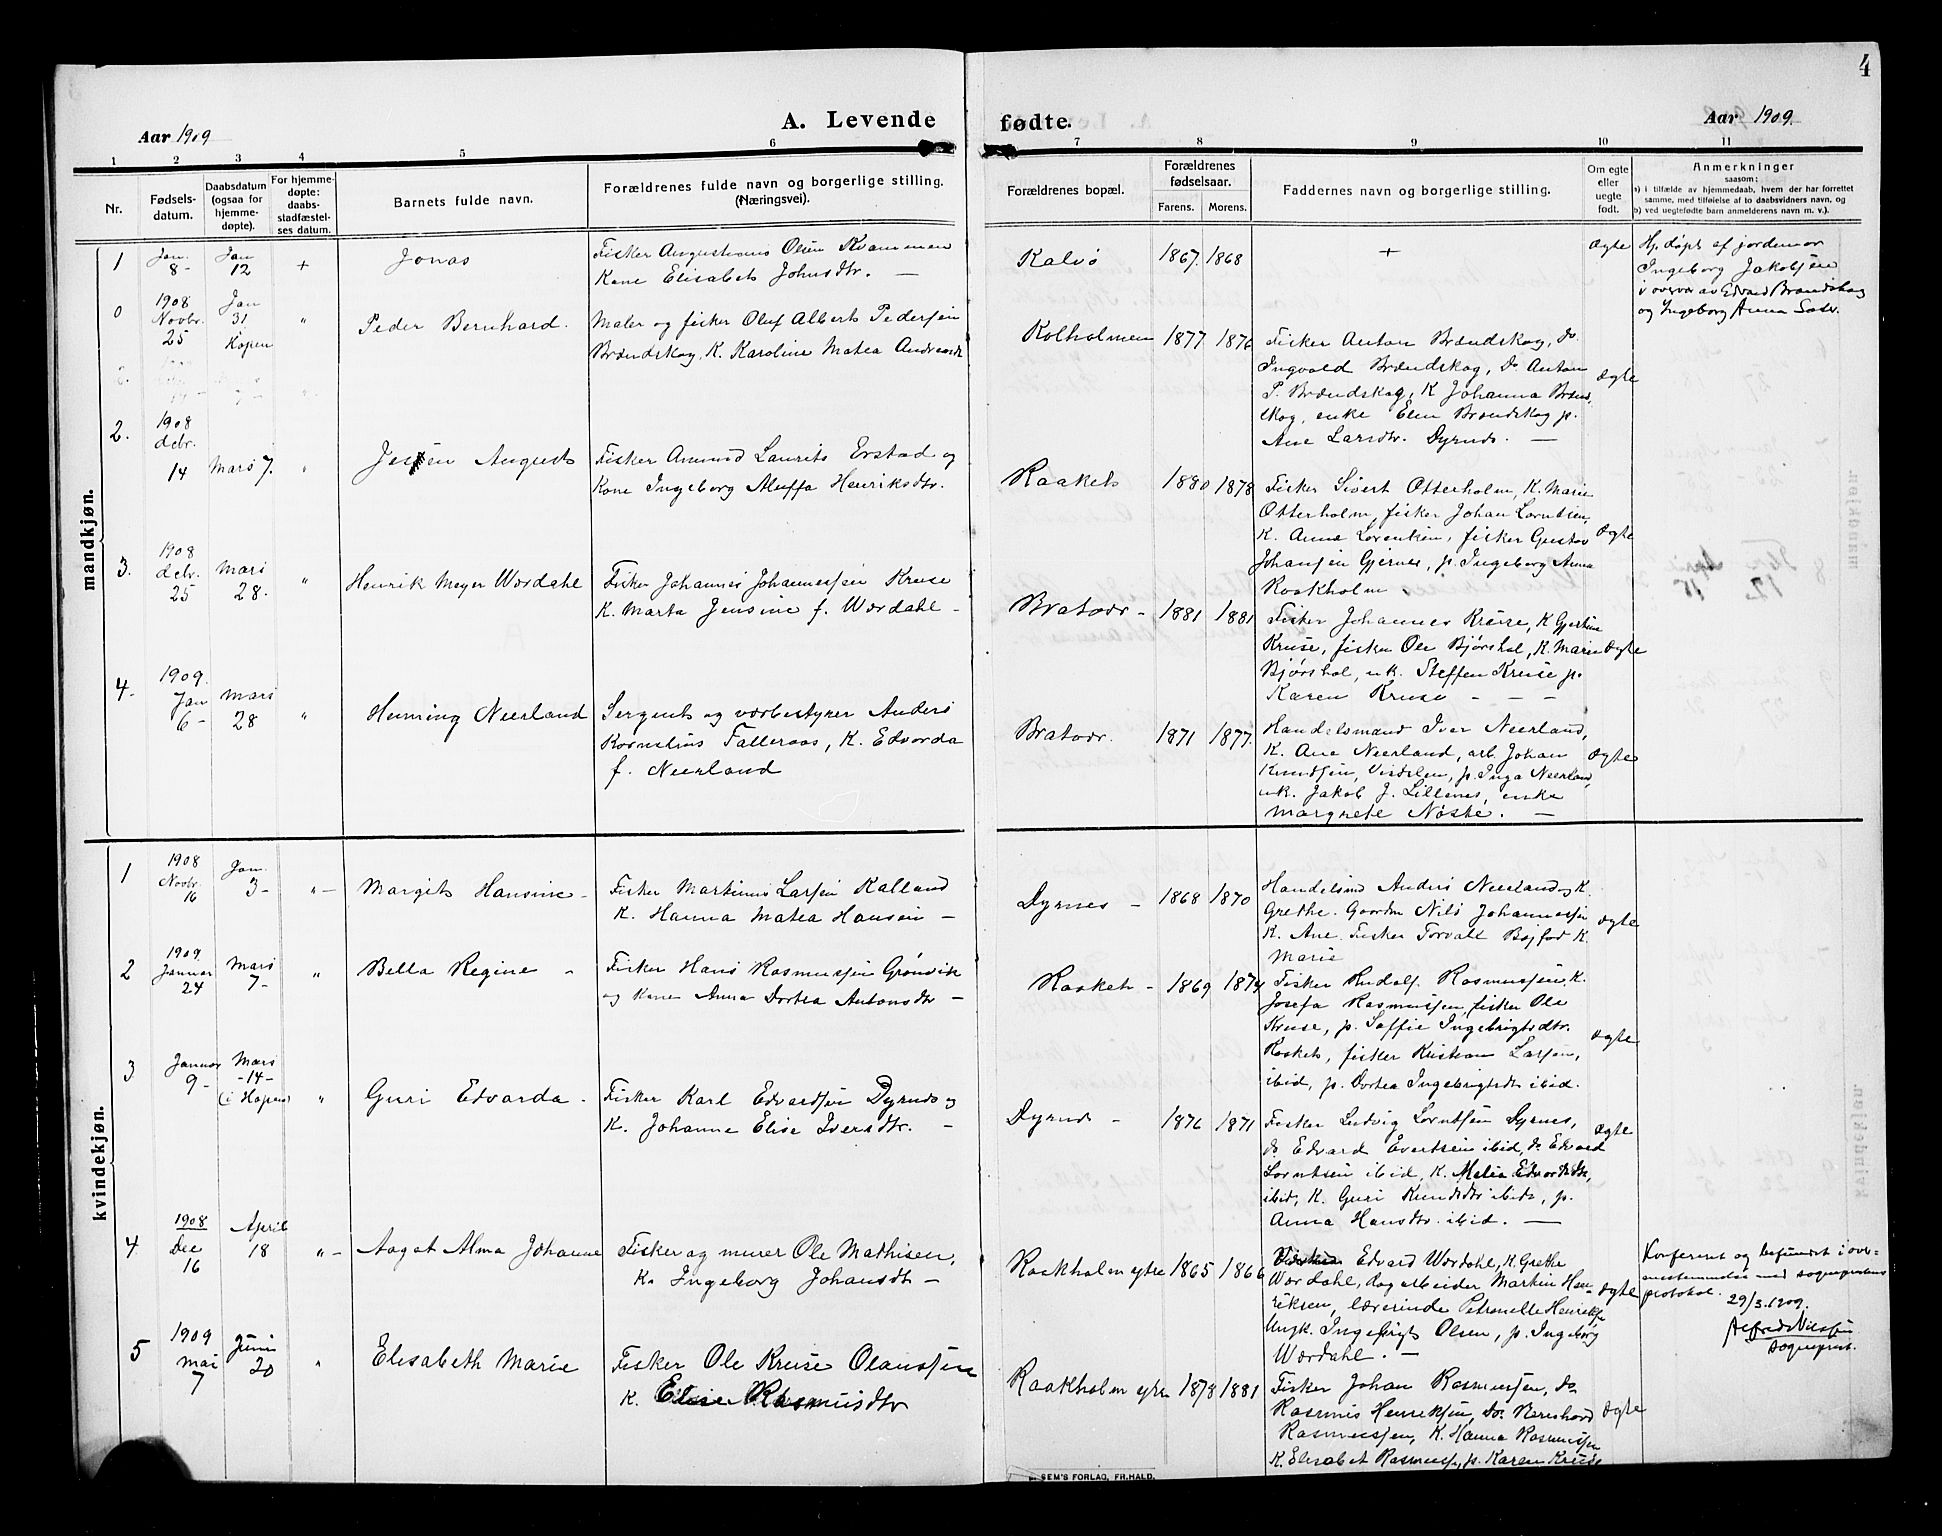 4
Aar 1909
A. Levende
fødte.
Aar 1909.
1 2 3 4 5 6 7 8 9 10 11
Nr.
Fødsels-
datum.
Daabsdatum
(ogsaa for
hjemme-
døpte).
For hjemme-
døpte:
daabs-
stadfæstel-
ses datum.
Barnets fulde navn.
Forældrenes fulde navn og borgerlige stilling.
(Næringsvei).
Forældrenes bopæl.
Forældrenes
fødselsaar.
Farens. Morens.
Faddernes navn og borgerlige stilling.
Om egte
eller
uegte
født.
Anmerkninger
saasom:
a) i tilfælde av hjemmedaab, hvem der har forrettet
samme, med tilføielse af to daabsvidners navn, og
b) ved uegtefødte barn anmelderens navn m. v.).
mandkjøn.
1
Jan.
8-
Jan
12
+
Jonas
Fisker Augustinus Olsen Kvammen
Kone Elisabet Johnsdtr. —
Kalvø
1867. 1868
+
ægte
Hj. døpt af jordemor
Ingeborg Jakobsen
i overvær av Edvard Brændskag
og Ingeborg Anna
0
1908
Novbr.
25
Jan
31
Hopen
"
Peder Bernhard.
Maler og fisker Oluf Albert Pedersen
Brændskag, K. Karoline Matea Andreasdt
Kolholmen
1877 1876
Fisker Anton Brændskag, do
Ingvald Brændskag, do Anton
P. Brændskag, K Johanna Brænd-
skag, enke Elen Brændskag p.
Ane Larsdtr. Dyrnes. —
ægte
2.
1908
debr.
14
Mars 7.
"
Jensen August
Fisker Amund Laurits Erstad og
Kone Ingeborg Aluffa Henriksdtr.
Raaket
1880 1878
Fisker Sivert Otterholm, K. Marie
Otterholm, fisker Johan Lorntsen,
K. Anne Lorentsen, fisker Gustav
Johansen Gjernes, p. Ingeborg Anna
Raakholm
ægte
3.
1908
debr.
25
Mars
28.
"
Henrik Meyer Wærdahl
Fisker Johannes Johannessen Kruse
K. Marta Jensine f. Wærdahl -
Bratvær -
1881 1881
Fisker Johannes Kruse, K Gjertine
Kruse, fisker Ole Bjørshol, K. Marie
Bjørshol, uk. Steffen Kruse p.
Karen Kruse - - -
ægte
4.
1909.
Jan
6-
Mars
28
"
Henning Neerland
Sergent og værbestyrer Anders
Kornelius Falleraas, K. Edvarda
f. Neerland
Bratvær.
1871 1877.
Handelsmand Iver Neerland,
K. Ane Neerland, arb. Johan
Knudsen, Visdalen, p. Inga Neerland,
uk. Jakob J. Lillenes, enke
Margrete Nøske. —
ægte
kvindekjøn.
1
1908
Novbr.
16
Jan.
3-
"-
Margit Hansine -
Fisker Martinus Larsen Kalland
K. Hanna Matea Hansen -
Dyrnes -
1868 1870
Handelsmd Anders Neerland, K.
Grethe. Gaardm Nils Johannessen
K. Ane. Fisker Torvalt K.
Marie
ægte
2
1909.
Januar
24
Mars
7-
"
Bella Regine -
Fisker Hans Rasmussen Grønvik
og Kone Anna Dortea Antonsdtr -
Raaket -
1869 1874
Fisker Rudolf Rasmussen, K.
Josefa Rasmussen, fisker Ole
Kruse, p. Saffie Ingebrigtsdtr.
Raaket, fisker Kristian Larsen,
ibid, p. Dortea Ingebrigtsdt ibid.
ægte
3
Januar
9-
Mars
-14-
(i Hopen)
"
Guri Edvarda -
Fisker Karl Edvardsen Dyrnes og
K. Johanne Elise Iversdtr. -
Dyrnes -
1876 1871
Fisker Ludvig Lorntsen Dyrnes,
do Edvard Evertsen ibid, do Edvard
Lorntsen ibid, K. Melia Edvardsdtr,
ibid, K. Guri Knudsdtr ibid, p.
Anna Hansdtr. ibid. —
ægte
4.
1908
Dec
16
April
18
"-
Aagot Alma Johanne
Fisker og murer Ole Mathisen,
K. Ingeborg Johansdtr -
Raakholm ytre
1865 1866
Edvard Wærdahl, K. Grethe
Wærdahl, dagarbeider Martin Hen-
riksen, lærerinde Petronelle Henriks,
Ungk. Ingebrigt Olsen, p. Ingeborg
Wærdahl. —
ægte
Konfereret og befundet i over-
ensstemmelse med sogneprestens
protokol.
29/3. 1909.
Alfred Nilssen
sogneprest.
5
1909
mai
7
Juni
20
"
Elisabeth Marie
Fisker Ole Kruse Olaussen
K. Elise Rasmusdtr
Raakholm ytre
1878 1881
Fisker Johan Rasmussen, do
Rasmus Henriksen, do. Bernhard
Rasmussen, K. Hanna Rasmussen
K. Elisabet Rasmussen, p. Karen Kruse
ægte
SEM'S FORLAG, FR.HALD.